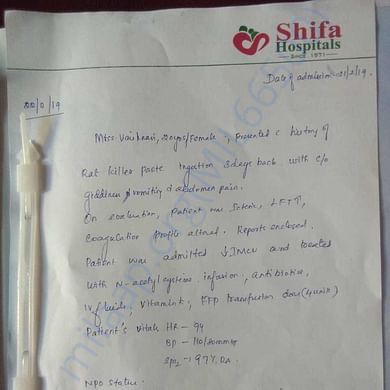 Shifa
Hospitals
SINCE 1971
Date of admission - 21/2/19.
22/2/19
Miss Vaishnavi, 20yrs/Female, Presented c history of
Rat killer paste ingestion 3days back with c/o
giddiness, vomiting & abdomen pain.
On evaluation, Patient was Icteric, LFT↑,
Coagulation Profile altered. Reports enclosed.
Patient was admitted IMCU and treated
with N-acetyl cysteine infusion, antibiotics,
IV fluids, Vitamin K, FFP transfusion done (4 units)
Patient's vitals HR - 94
BP - 110/80mmHg
SpO2 - 97% RA.
NPO status.